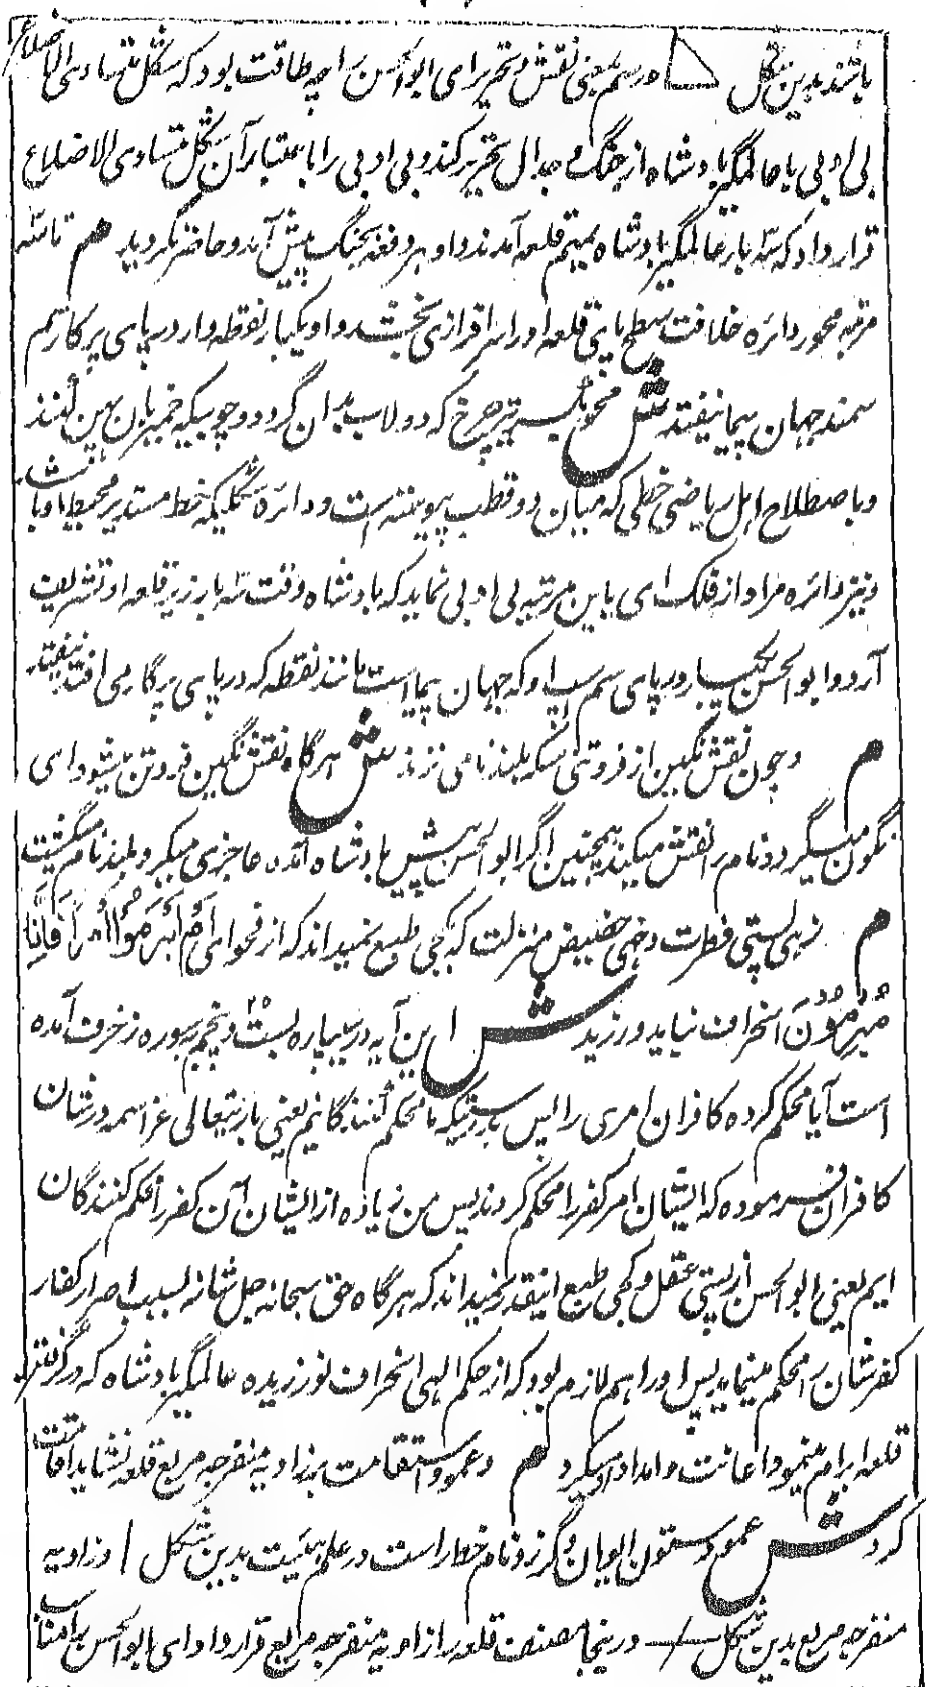 باشند بدین شکل و رسم یعنی نقش و تحریر ای ابوالحسن را چه طاقت بود که شکل متساوی الاضلاع
بی ادبی با عالمگیر بادشاه از جنگ و جدال تحریر کند و بی ادبی را باعتبار آن بشکل متساوی الاضلاع
قرار داد که سه بار عالمگیر بادشاه بمهم قلعه آمدند و او هر دفعه بجنگ پیش آمد و حاضر نگردید م تا سه
مرتبه محور دائره خلافت سطح پائین قلعه او را سرافرازی بخشد و او یکبار نقطه وار در پای پرکار سم
سمند جهان پیما نیفتد ش محور تیر چرخ که دولاب بدان گردد و چوبیکه خمیر بان پهن کنند
و باصطلاح اهل ریاضی خطی که میان دو قطب پیوسته است و دائره شکلیکه خط مستدیر محیط او باشد
و نیز دائره مراد از فلک ای باین مرتبه بی ادبی نماید که بادشاه وقت سه بار زیر قلعه او تشریف
آرد و ابوالحسن یکبار در پای سم اسپ او که جهان پیما است مانند نقطه که در پای پرگار می افتد نیفتد
م و چون نقش نگین از فروتنی سکه بلند نامی نزند ش هرگاه نقش نگین فروتن میشود ای
نگون میگردد نام را نقش میکند همچنین اگر ابوالحسن پیش بادشاه آمده عاجزی میکرد بلند نام میگشت
م زهی پستی فطرت و خهی حضیض منزلت که بکجی طبع نمیداند که از فحوای اَمْ اَبْرَمُوْا اَمْرًا فَاِنَّا
مُبْرِمُوْنَ انحراف نباید ورزید ش این آیه در سیپاره بست و پنجم بسوره زخرف آمده
است آیا محکم کرده کافران امری را پس بدرستیکه ما محکم کنندگانیم یعنی باریتعالی عز اسمه در شان
کافران فرموده که ایشان امر کفر را محکم کردند پس من زیاده از ایشان آن کفر را محکم کنندگان
ایم یعنی ابوالحسن از پستی عقل و کجی طبع اینقدر نمیداند که هرگاه حق سبحانه جل شانه بسبب اصرار کفار
کفر شان را محکم مینماید پس او را هم لازم بود که از حکم الهی انحراف نورزیده عالمگیر بادشاه که در گرفتن
قلعه ابرام مینمود اعانت و امداد او میکرد م و عمود استقامت بزاویه منفرجه مربع قلعه نشاید اقامت
کرد ش عمود ستون ایوان و گرز و نام خط راست در علم هیئت بدین شکل / و زاویه
منفرجه مربع بدین شکل و درینجا مصنف قلعه را زاویه منفرجه مربع قرار داد ای بابوالحسن مناسب